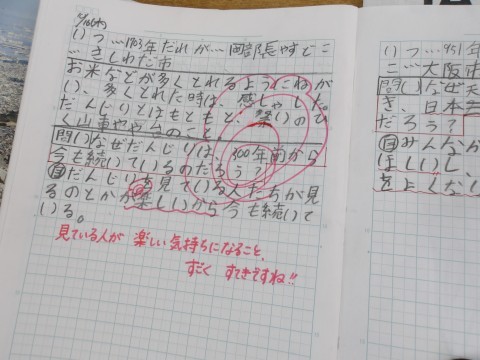 5/16(木)
いつ…1703年だれが…岡部長やすどこ
…きしわだ市
お米などが多くとれるようにねが
い、多くとれた時は、感しゃした。
だんじりとはもともと、祭りのひ
く山車ややたいのこと。
問いなぜだんじりは、300年前から
今も続いているのだろう?
自だんじりを見ている人たちが見
るのとかが楽しいから今も続いて
いる。
見ている人が 楽しい気持ちになること、
すごく すてきですね!!
いつ…951年
こ…大阪市
問いなぜ天
き、日本三
だろう?
自みんなか
ほしいし、
をよくない